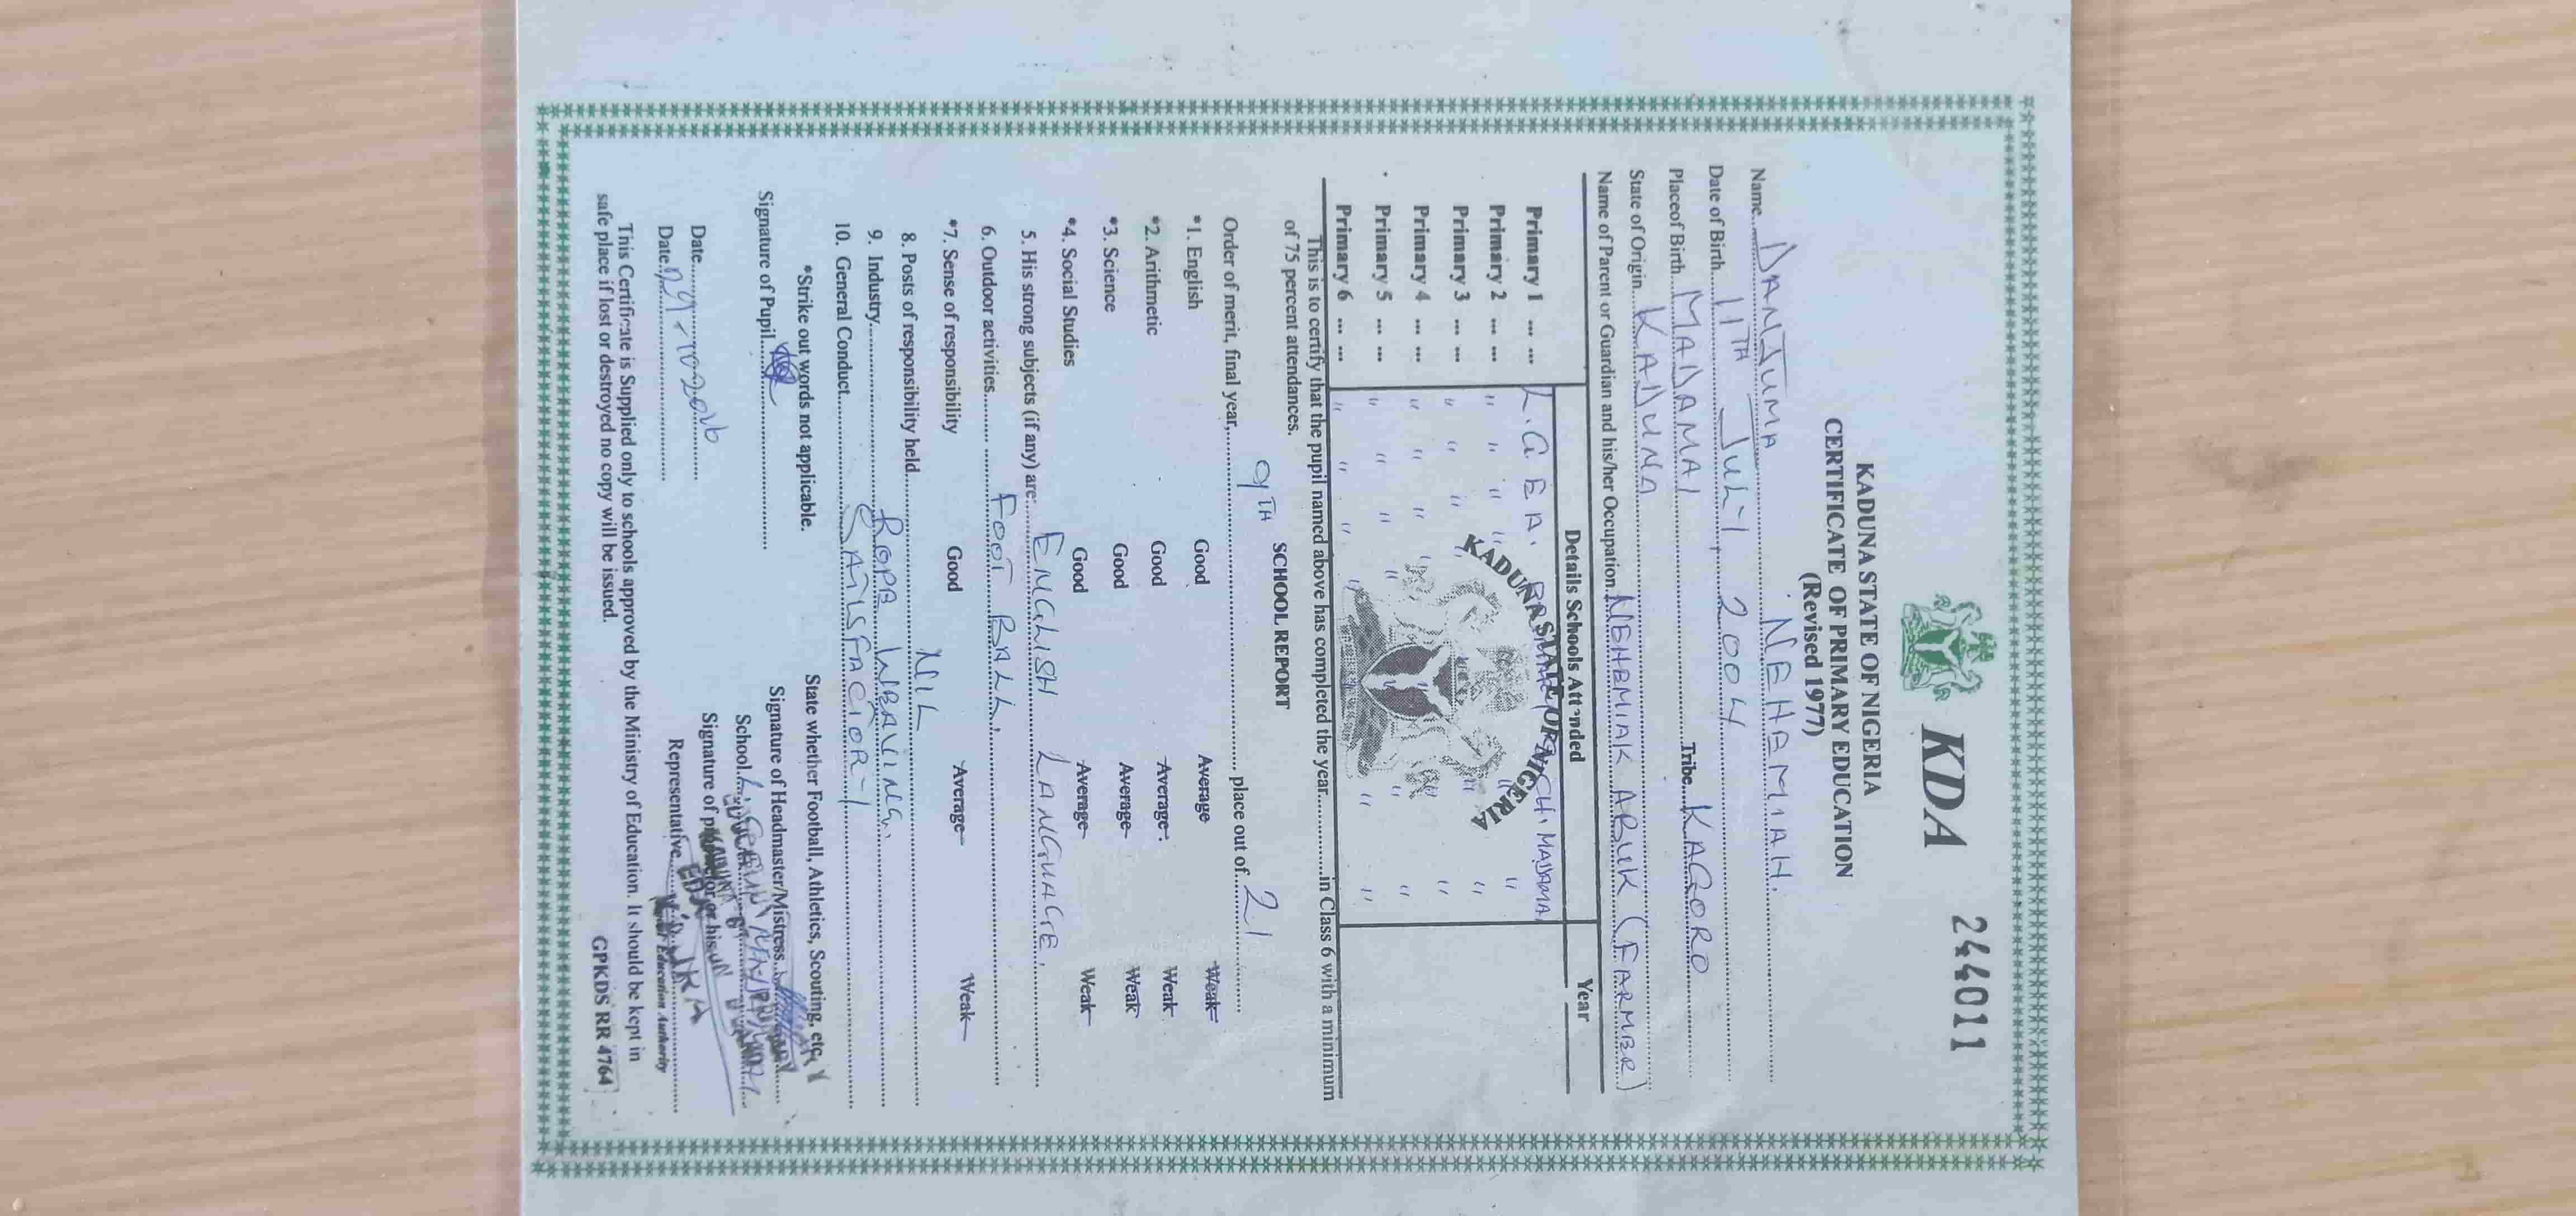 KDA 244011
KADUNA STATE OF NIGERIA
CERTIFICATE OF PRIMARY EDUCATION
(Revised 1977)
Name... DANJUMA NEHAMIAH.
Date of Birth... 11TH JULY, 2004
Placeof Birth... MADAMAI Tribe... KAGORO
State of Origin... KADUNA
Name of Parent or Guardian and his/her Occupation NEHEMIAH ABUK (FARMER)
Details Schools Attended Year
Primary 1 ... ... L.G.E.A. MADAMAI
Primary 2 ... ... " " " " " "
Primary 3 ... ... " " " " " "
Primary 4 ... ... " " " " " "
Primary 5 ... ... " " " " " "
Primary 6 ... ... " " " " " "
KADUNA STATE OF NIGERIA
This is to certify that the pupil named above has completed the year............in Class 6 with a minimum
of 75 percent attendances.
SCHOOL REPORT
Order of merit, final year,... 9TH ... place out of... 21
*1. English Good Average Weak
*2. Arithmetic Good Average Weak
*3. Science Good Average Weak
*4. Social Studies Good Average Weak
5. His strong subjects (if any) are:... ENGLISH LANGUAGE.
6. Outdoor activities... FOOT BALL.
*7. Sense of responsibility Good Average Weak
8. Posts of responsibility held... NIL
9. Industry... ROPE WEAVING.
10. General Conduct... SATISFACTORY
*Strike out words not applicable. State whether Football, Athletics, Scouting, etc.
Signature of Pupil... Signature of Headmaster/Mistress...
School...
Date... Signature of
Date... Representative...
This Certificate is Supplied only to schools approved by the Ministry of Education. It should be kept in
safe place if lost or destroyed no copy will be issued.
GPKDS RR 4764